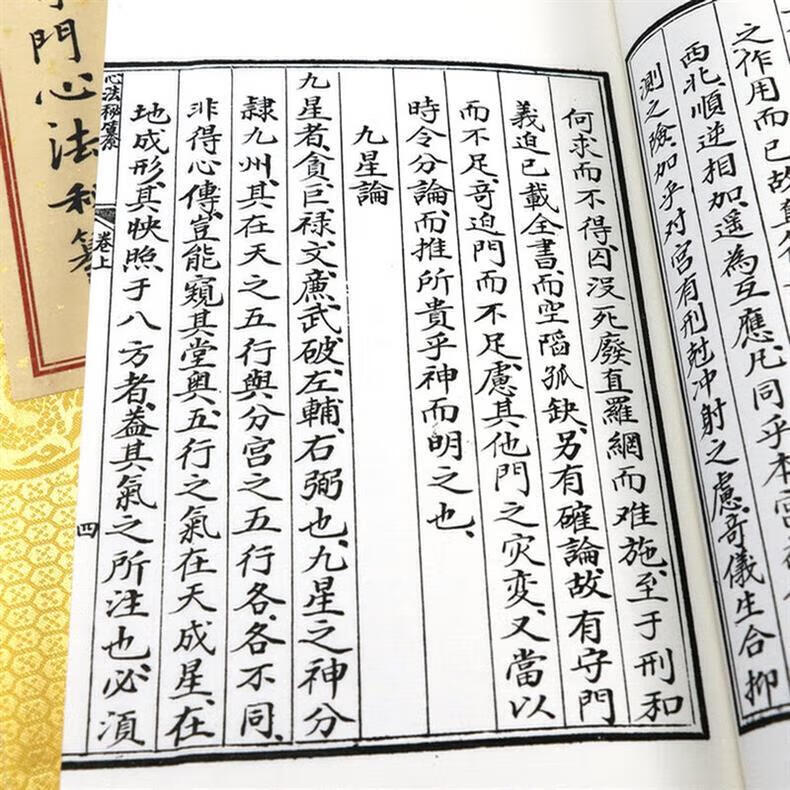 之作用而已故直
西北、順逆相加、遥為互應、凡同乎本宫
測之險、加乎对宫有刑尅冲射之慮、奇儀生合抑
何求而不得、囚没死廢直羅網而难施、至于刑和
義迫已載全書、而空陷孤缺、另有確論、故有守門
而不足、奇迫門而不足、慮其他門之灾变、又當以
時令分論、而推所貴乎神而明之也、
九星論
九星者、貪、巨、禄、文、廉、武、破、左輔、右弼也、九星之神分
隸九州、其在天之五行、與分宫之五行各各不同、
非得心傳、豈能窺其堂奥、五行之氣在天成星、在
地成形、其映照于八方者、蓋其氣之所注也、必須
心法秘纂 卷上 四
門心法秘纂